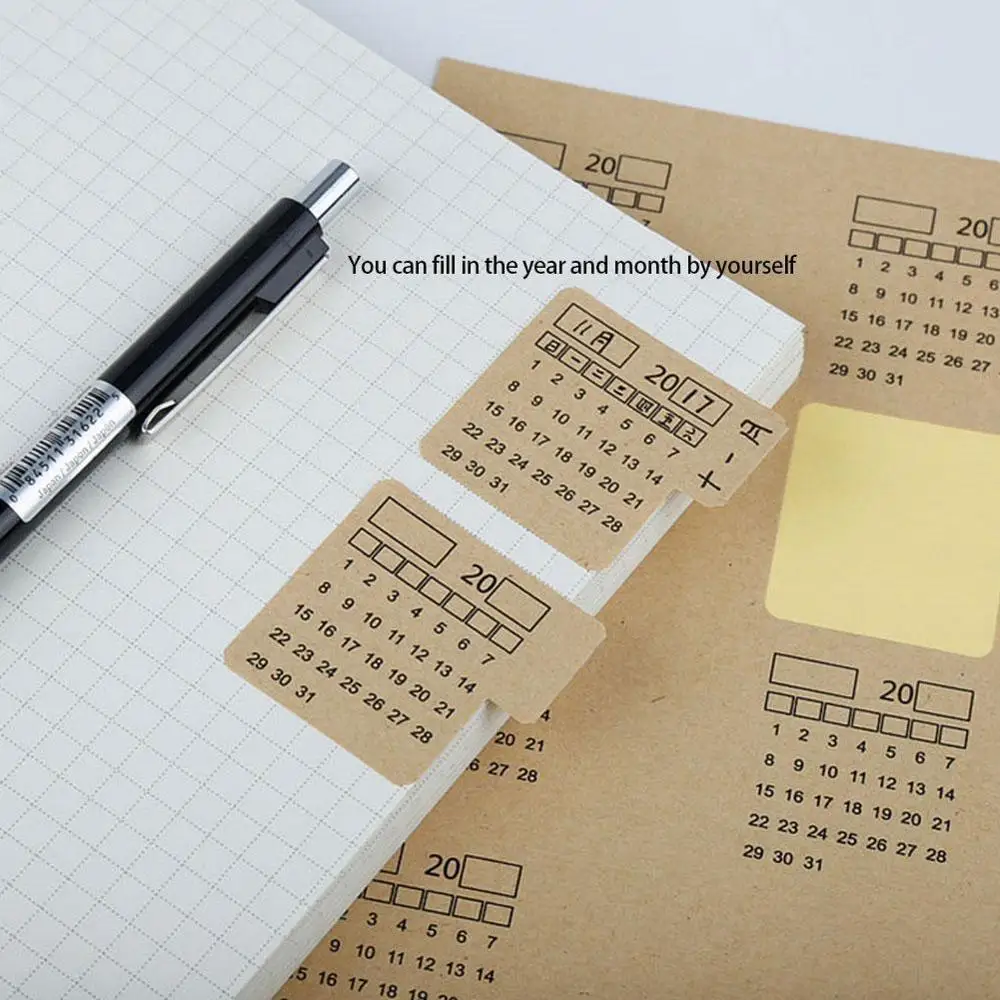 20
20
1 2 3 4 5 6
8 9 10 11 12 13
15 16 17 18 19 20
22 23 24 25 26 27
29 30 31
You can fill in the year and month by yourself
11月 2017
日 一 二 三 四 五 六
1 2 3 4 5 6 7
8 9 10 11 12 13 14
15 16 17 18 19 20 21
22 23 24 25 26 27 28
29 30 31
十一月
0 84511 31622 5
Japan / Japan / Japan
20
1 2 3 4 5 6 7
8 9 10 11 12 13 14
15 16 17 18 19 20 21
22 23 24 25 26 27 28
29 30 31
20 21
27 28
20
1 2 3 4 5 6 7
8 9 10 11 12 13 14
15 16 17 18 19 20 21
22 23 24 25 26 27 28
29 30 31
20
3 4 5 6 7
9 10 11 12 13 14
17 18 19 20 21